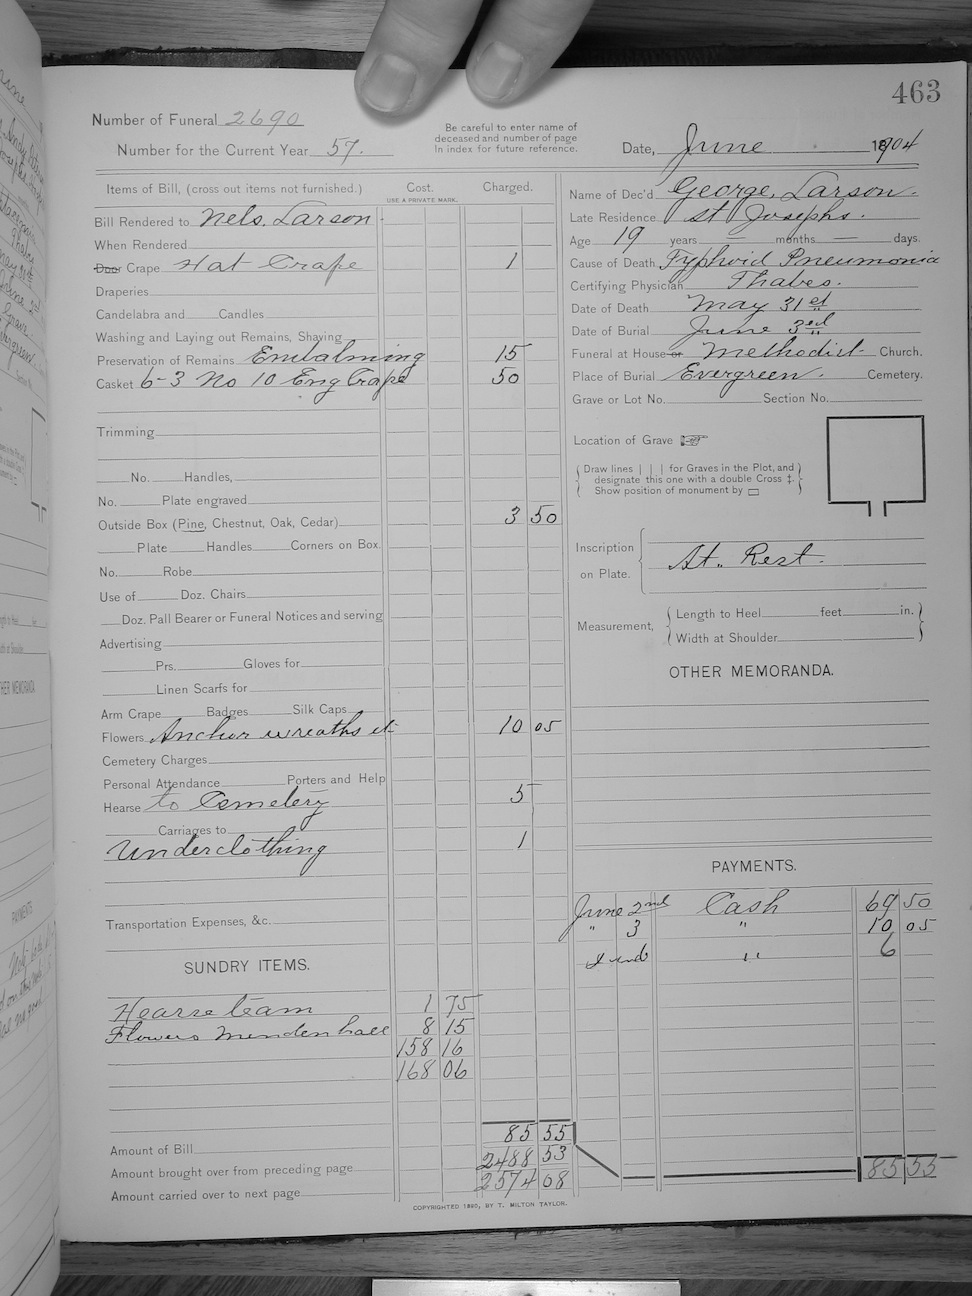 463
Number of Funeral 2690
Number for the Current Year 57.
Be careful to enter name of
deceased and number of page
In index for future reference.
Date, June 1904
Items of Bill, (cross out items not furnished.)
Cost.
USE A PRIVATE MARK.
Charged.
Bill Rendered to Nels. Larson.
When Rendered
Door Crape Hat Crape 1
Draperies
Candelabra and Candles
Washing and Laying out Remains, Shaving
Preservation of Remains Embalming 15
Casket 6-3 No 10 Eng Crape 50
Trimming
No. Handles,
No. Plate engraved
Outside Box (Pine, Chestnut, Oak, Cedar) 3 50
Plate Handles Corners on Box.
No. Robe
Use of Doz. Chairs
Doz. Pall Bearer or Funeral Notices and serving
Advertising
Prs. Gloves for
Linen Scarfs for
Arm Crape Badges Silk Caps
Flowers Anchor wreaths et 10 05
Cemetery Charges
Personal Attendance Porters and Help
Hearse to Cemetery 5
Carriages to
Underclothing 1
Transportation Expenses, &c.
SUNDRY ITEMS.
Hearse team 1 75
Flowers Mendenhall 8 15
158 16
168 06
85 55
Amount of Bill
2488 53
Amount brought over from preceding page
2574 08
Amount carried over to next page
Name of Dec'd George. Larson.
Late Residence St Josephs.
Age 19 years — months — days.
Cause of Death Typhoid Pneumonia
Certifying Physician Thabes.
Date of Death May 31st
Date of Burial June 3rd
Funeral at House or Methodist Church.
Place of Burial Evergreen. Cemetery.
Grave or Lot No. Section No.
Location of Grave
Draw lines | | | for Graves in the Plot, and
designate this one with a double Cross ‡.
Show position of monument by ▭
Inscription
on Plate.
At. Rest.
Measurement,
Length to Heel feet in.
Width at Shoulder
OTHER MEMORANDA.
PAYMENTS.
June 2nd Cash 69 50
" 3 " 10 05
" 6
85 55
COPYRIGHTED 1890, BY T. MILTON TAYLOR.